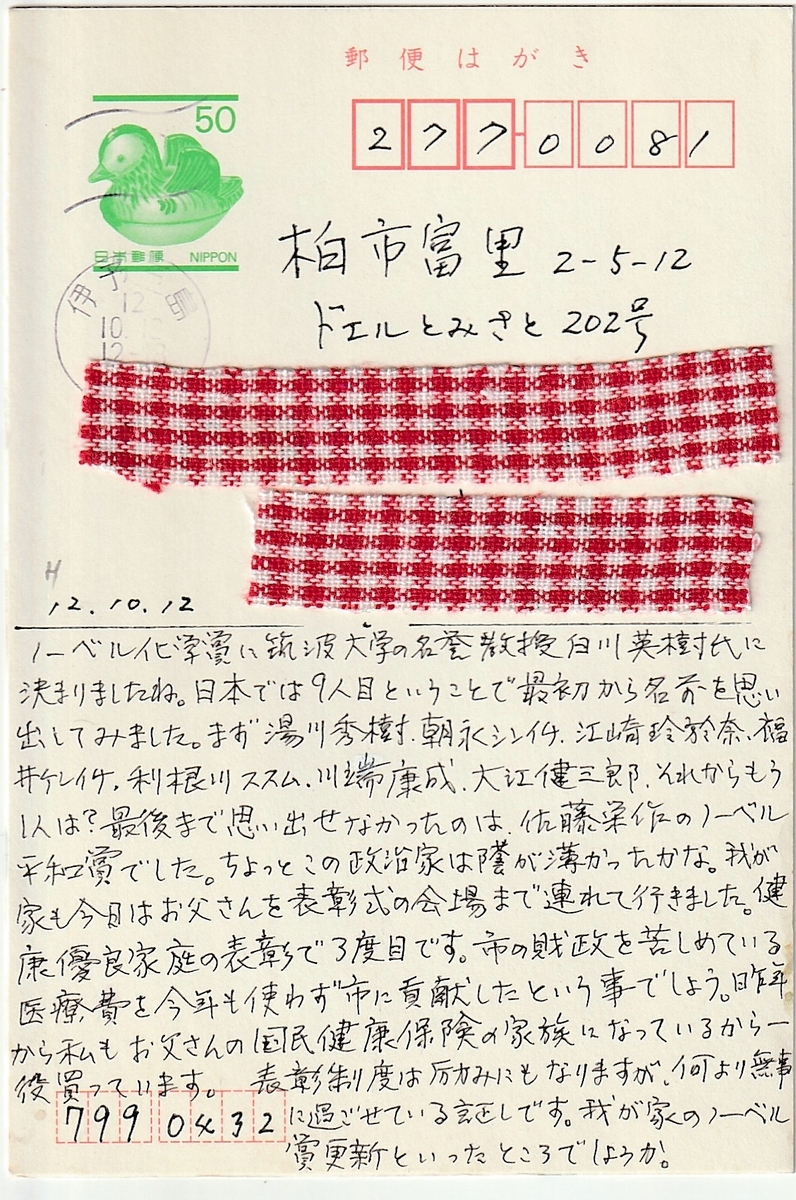 郵便はがき
50
日本郵便 NIPPON
277-0081
伊予 島
12
10.12
12-
柏市富里 2-5-12
ドエルとみさと 202号
H
12.10.12
ノーベル化学賞に筑波大学の名誉教授白川英樹氏に
決まりましたね。日本では9人目ということで最初から名前を思い
出してみました。まず湯川秀樹、朝永シンイチ、江崎玲於奈、福
井ケンイチ、利根川ススム、川端康成、大江健三郎、それからもう
1人は?最後まで思い出せなかったのは、佐藤栄作のノーベル
平和賞でした。ちょっとこの政治家は蔭が薄かったかな。我が
家も今日はお父さんを表彰式の会場まで連れて行きました。健
康優良家庭の表彰で3度目です。市の財政を苦しめている
医療費を今年も使わず市に貢献したという事でしょう。昨年
から私もお父さんの国民健康保険の家族になっているから一
役買っています。 表彰制度は励みにもなりますが、何より無事
に過ごせている証しです。我が家のノーベル
賞更新といったところでしょうか。
799 0432